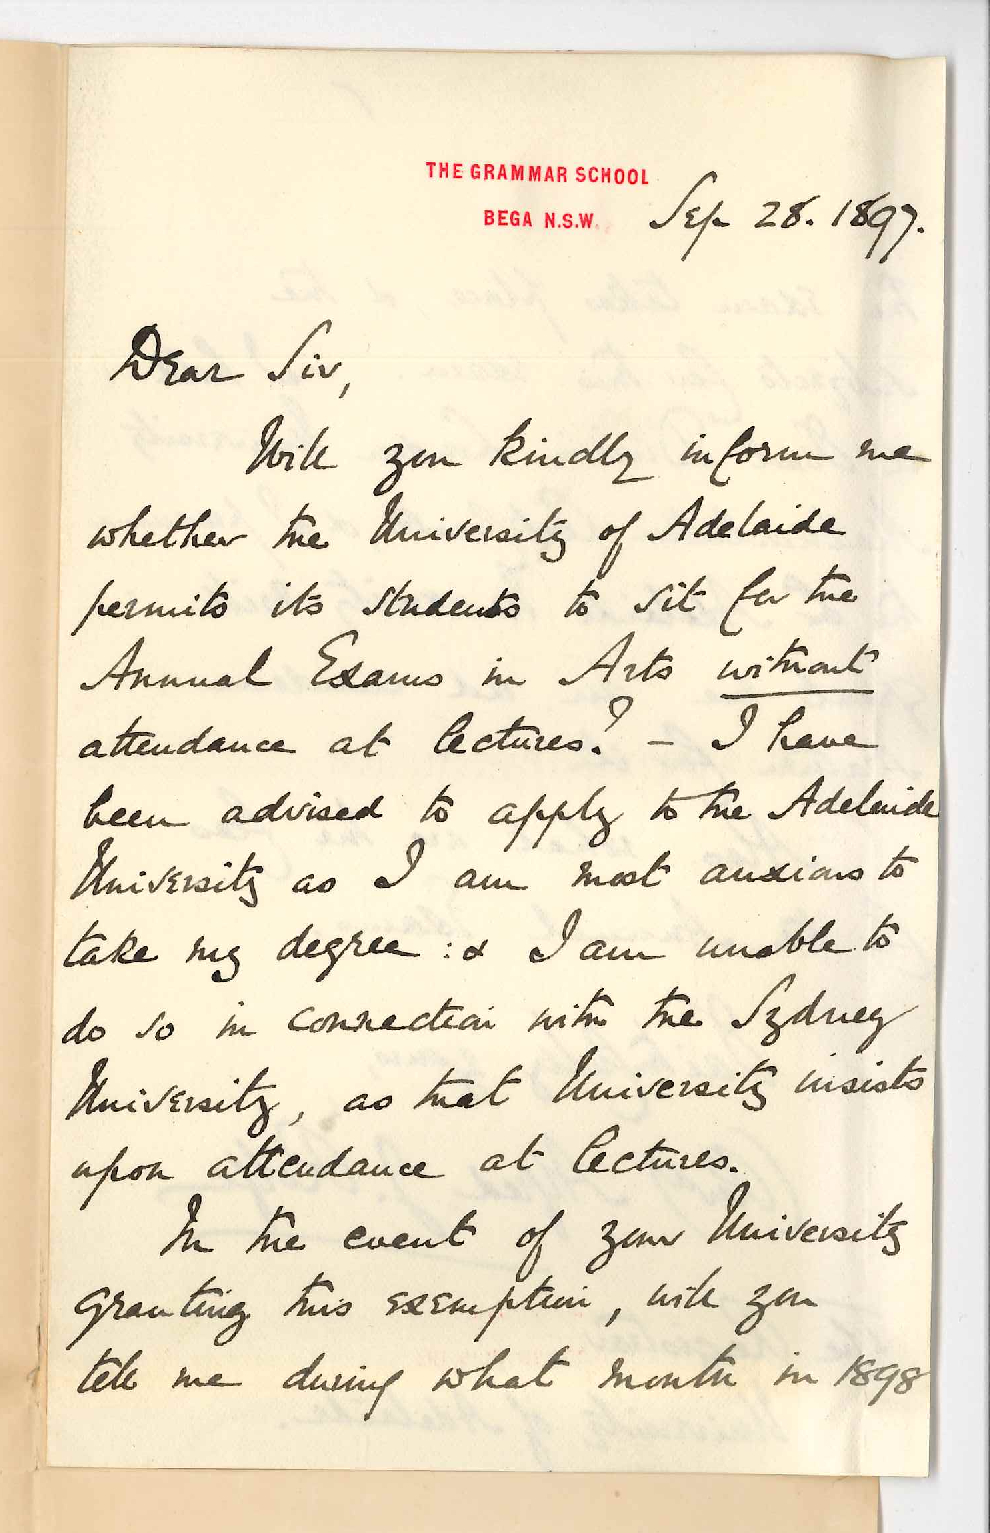 THE GRAMMAR SCHOOL
BEGA N.S.W. Sep 28. 1897.
Dear Sir,
Will you kindly inform me
whether the University of Adelaide
permits its students to sit for the
Annual Exams in Arts without
attendance at lectures? – I have
been advised to apply to the Adelaide
University as I am most anxious to
take my degree : & I am unable to
do so in connection with the Sydney
University, as that University insists
upon attendance at lectures.
In the event of your University
granting this exemption, will you
tell me during what month in 1898